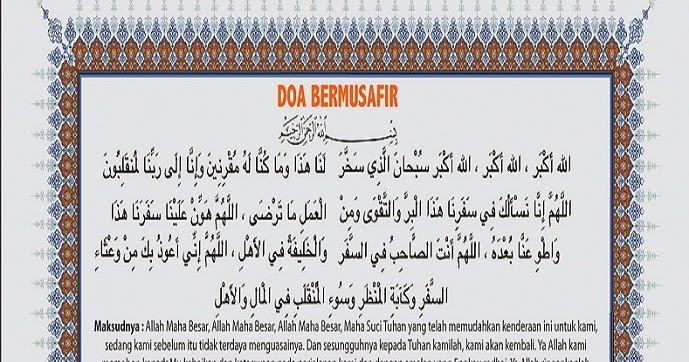 DOA BERMUSAFIR
بِسْمِ اللهِ الرَّحْمٰنِ الرَّحِيْمِ
الله أَكْبَر ، الله أَكْبَر ، الله أَكْبَر سُبْحَانَ الَّذِي سَخَّرَ لَنَا هَذَا وَمَا كُنَّا لَهُ مُقْرِنِينَ وَإِنَّا إِلَى رَبِّنَا لَمُنْقَلِبُونَ
اللَّهُمَّ إِنَّا نَسْأَلُكَ فِي سَفَرِنَا هَذَا الْبِرَّ وَالتَّقْوَى وَمِنَ الْعَمَلِ مَا تَرْضَى ، اللَّهُمَّ هَوِّنْ عَلَيْنَا سَفَرَنَا هَذَا
وَاطْوِ عَنَّا بُعْدَهُ ، اللَّهُمَّ أَنْتَ الصَّاحِبُ فِي السَّفَرِ وَالْخَلِيفَةُ فِي الأَهْلِ ، اللَّهُمَّ إِنِّي أَعُوذُ بِكَ مِنْ وَعْثَاءِ
السَّفَرِ وَكَآبَةِ الْمَنْظَرِ وَسُوءِ الْمُنْقَلَبِ فِي الْمَالِ وَالأَهْلِ
Maksudnya : Allah Maha Besar, Allah Maha Besar, Allah Maha Besar, Maha Suci Tuhan yang telah memudahkan kenderaan ini untuk kami,
sedang kami sebelum itu tidak terdaya menguasainya. Dan sesungguhnya kepada Tuhan kamilah, kami akan kembali. Ya Allah kami